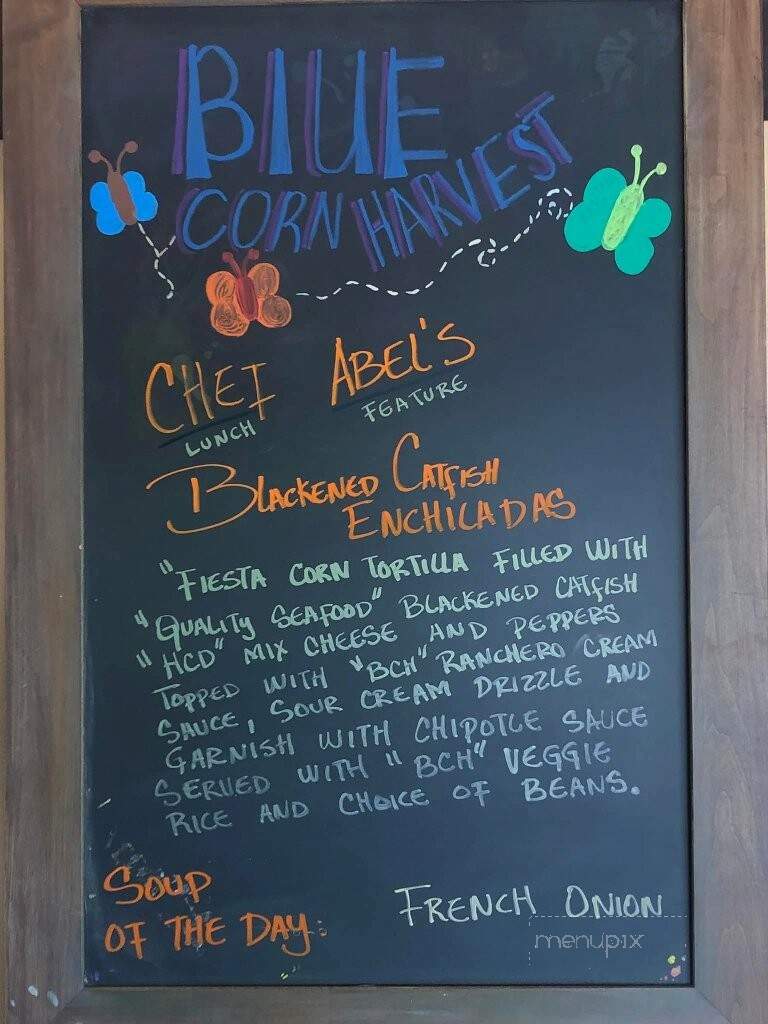 BLUE
CORN HARVEST
CHEF ABEL'S
LUNCH FEATURE
BLACKENED CATFISH
ENCHILADAS
"FIESTA CORN TORTILLA FILLED WITH
"QUALITY SEAFOOD" BLACKENED CATFISH
"HCD" MIX CHEESE AND PEPPERS
TOPPED WITH "BCH" RANCHERO CREAM
SAUCE, SOUR CREAM DRIZZLE AND
GARNISH WITH CHIPOTLE SAUCE
SERVED WITH "BCH" VEGGIE
RICE AND CHOICE OF BEANS.
SOUP
OF THE DAY: FRENCH ONION
menupix